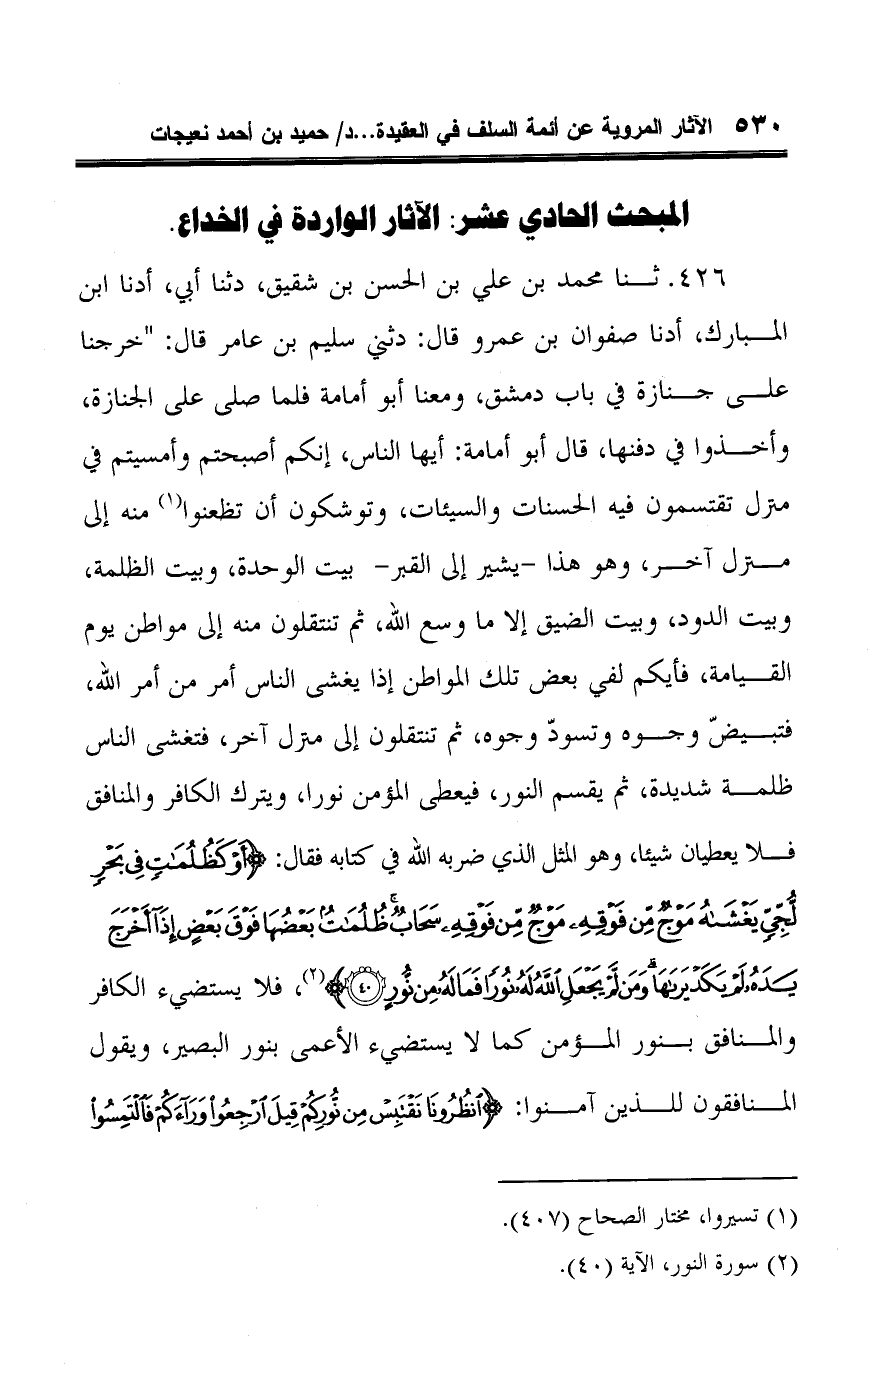 ٥٣٠ الآثار المروية عن أئمة السلف في العقيدة...د/ حميد بن أحمد نعيجات
المبحث الحادي عشر: الآثار الواردة في الخداع.
٤٢٦. ثنا محمد بن علي بن الحسن بن شقيق، دثنا أبي، أدنا ابن
المبارك، أدنا صفوان بن عمرو قال: دثني سليم بن عامر قال: "خرجنا
على جنازة في باب دمشق، ومعنا أبو أمامة فلما صلى على الجنازة،
وأخذوا في دفنها، قال أبو أمامة: أيها الناس، إنكم أصبحتم وأمسيتم في
منزل تقتسمون فيه الحسنات والسيئات، وتوشكون أن تظعنوا(١) منه إلى
منزل آخر، وهو هذا -يشير إلى القبر- بيت الوحدة، وبيت الظلمة،
وبيت الدود، وبيت الضيق إلا ما وسع الله، ثم تنتقلون منه إلى مواطن يوم
القيامة، فأيكم لفي بعض تلك المواطن إذا يغشى الناس أمر من أمر الله،
فتبيضّ وجوه وتسودّ وجوه، ثم تنتقلون إلى منزل آخر، فتغشى الناس
ظلمة شديدة، ثم يقسم النور، فيعطى المؤمن نورا، ويترك الكافر والمنافق
فلا يعطيان شيئا، وهو المثل الذي ضربه الله في كتابه فقال: ﴿أَوْ كَظُلُمَٰتٍ فِي بَحْرٍ
لُّجِّيٍّ يَغْشَىٰهُ مَوْجٌ مِّن فَوْقِهِۦ مَوْجٌ مِّن فَوْقِهِۦ سَحَابٌ ۚ ظُلُمَٰتٌۢ بَعْضُهَا فَوْقَ بَعْضٍ إِذَآ أَخْرَجَ
يَدَهُۥ لَمْ يَكَدْ يَرَىٰهَا ۗ وَمَن لَّمْ يَجْعَلِ ٱللَّهُ لَهُۥ نُورًا فَمَا لَهُۥ مِن نُّورٍ ٤٠﴾(٢)، فلا يستضيء الكافر
والمنافق بنور المؤمن كما لا يستضيء الأعمى بنور البصير، ويقول
المنافقون للذين آمنوا: ﴿ٱنظُرُونَا نَقْتَبِسْ مِن نُّورِكُمْ قِيلَ ٱرْجِعُوا۟ وَرَآءَكُمْ فَٱلْتَمِسُوا۟
(١) تسيروا، مختار الصحاح (٤٠٧).
(٢) سورة النور، الآية (٤٠).